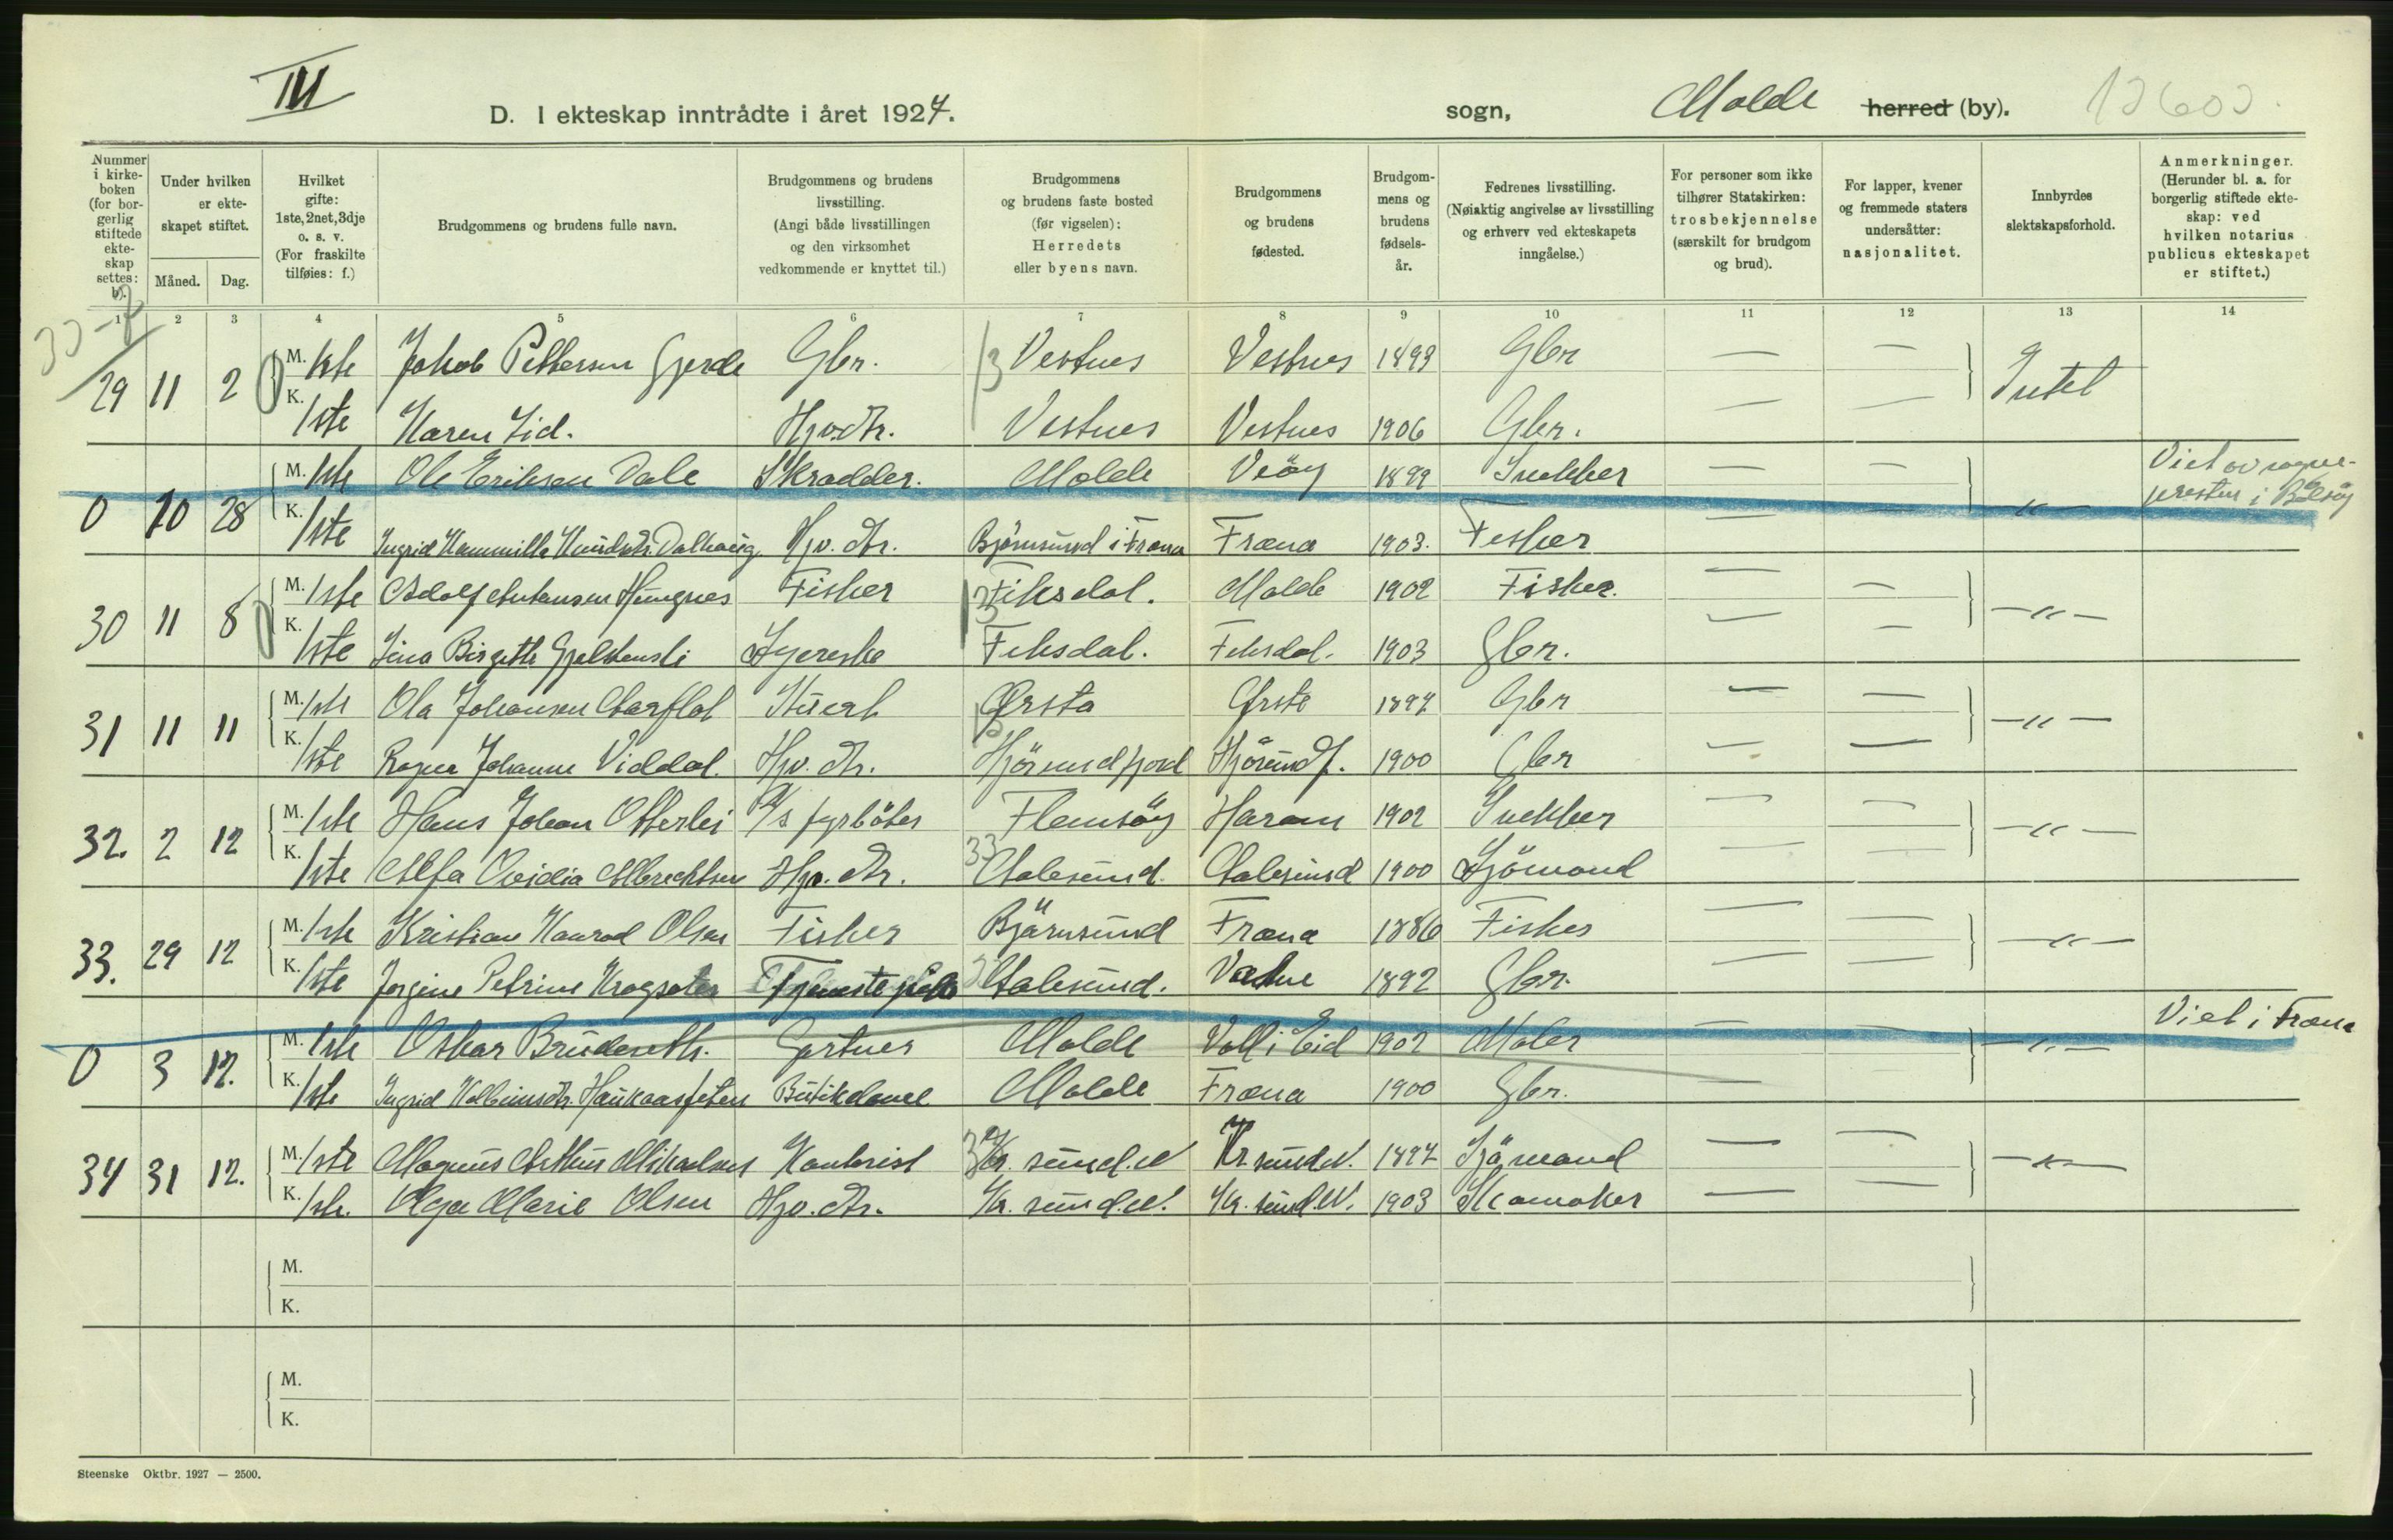 III
D. I ekteskap inntrådte i året 1927.
sogn, Molde herred (by).
Nummer i kirkeboken (for borgerlig stiftede ekteskap settes: b).
Under hvilken er ekteskapet stiftet.
Måned. Dag.
Hvilket gifte: 1ste, 2net, 3dje o. s. v. (For fraskilte tilføies: f.)
Brudgommens og brudens fulle navn.
Brudgommens og brudens livsstilling. (Angi både livsstillingen og den virksomhet vedkommende er knyttet til.)
Brudgommens og brudens faste bosted (før vigselen): Herredets eller byens navn.
Brudgommens og brudens fødested.
Brudgommens og brudens fødselsår.
Fedrenes livsstilling. (Nøiaktig angivelse av livsstilling og erhverv ved ekteskapets inngåelse.)
For personer som ikke tilhører Statskirken: trosbekjennelse (særskilt for brudgom og brud).
For lapper, kvener og fremmede staters undersåtter: nasjonalitet.
Innbyrdes slektskapsforhold.
Anmerkninger. (Herunder bl. a. for borgerlig stiftede ekteskap: ved hvilken notarius publicus ekteskapet er stiftet.)
1 2 3 4 5 6 7 8 9 10 11 12 13 14
29 11 2 M. 1ste Jakob Pettersen Gjerde Gbr. Vestnes Vestnes 1893 Gbr — — Intet
K. 1ste Karen Lid. Hjv.dtr. Vestnes Vestnes 1906 Gbr. — —
0 10 28 M. 1ste Ole Eriksen Dale Skradder. Molde Veöy 1899 Snekker — — —"— Viet av sogne-
presten i Bolsöy
K. 1ste Ingrid Kammilla Knudsdtr. Dalhaug Hjv. dtr. Björnsund i Fræna Fræna 1903. Fisker —
30 11 8 M. 1ste Adolf Antonsen Hungnes Fisker Fiksdal. Molde 1902 Fisker. — — —"—
K. 1ste Lina Birgitte Gjelstenli Syerske Fiksdal. Fiksdal. 1903 Gbr. — —
31 11 11 M. 1ste Ola Johansen Aarflot Stuert Ørsta Ørsta 1897 Gbr — — —"—
K. 1ste Ragna Johanne Viddal. Hjv. dtr. Hjörundfjord Hjörundf. 1900 Gbr — —
32. 2 12 M. 1ste Hans Johan Otterlei D/s fyrböter Flemsöy Haram 1902 Snekker — — —"—
K. 1ste Alfa Ovidia Albrechtsen Hjv. dtr. Aalesund. Aalesund 1900 Sjömand — —
33. 29 12 M. 1ste Kristian Konrad Olsen Fisker Björnsund Fræna 1886 Fisker — — —"—
K. 1ste Jorgine Petrine Krogsæter Tjenestepike Aalesund. Vatne 1892 Gbr. — —
0 3 12. M. 1ste Oskar Bruderth. Gartner Molde Voll i Eid 1902 Maler — — —"— Viet i Fræna
K. 1ste Ingrid Kolbeinsdtr. Haukaasfeten Butikdame Molde Fræna 1900 Gbr. — —
34 31 12. M. 1ste Magnus Arthur Mikaelsen Kontorist Kr. sund.N Kr sund.N. 1897 Sjömand — — —"—
K. 1ste. Olga Marie Olsen Hjv. dtr. Kr. sund.N. Kr. sund.N. 1903 Skomaker — —
M.
K.
M.
K.
Steenske Oktbr. 1927 — 2500.